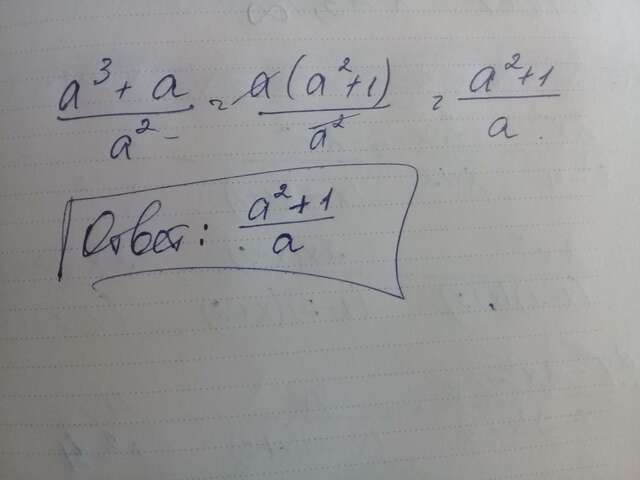 a³ + a / a² = a(a²+1) / a² = a²+1 / a
Ответ: a²+1 / a